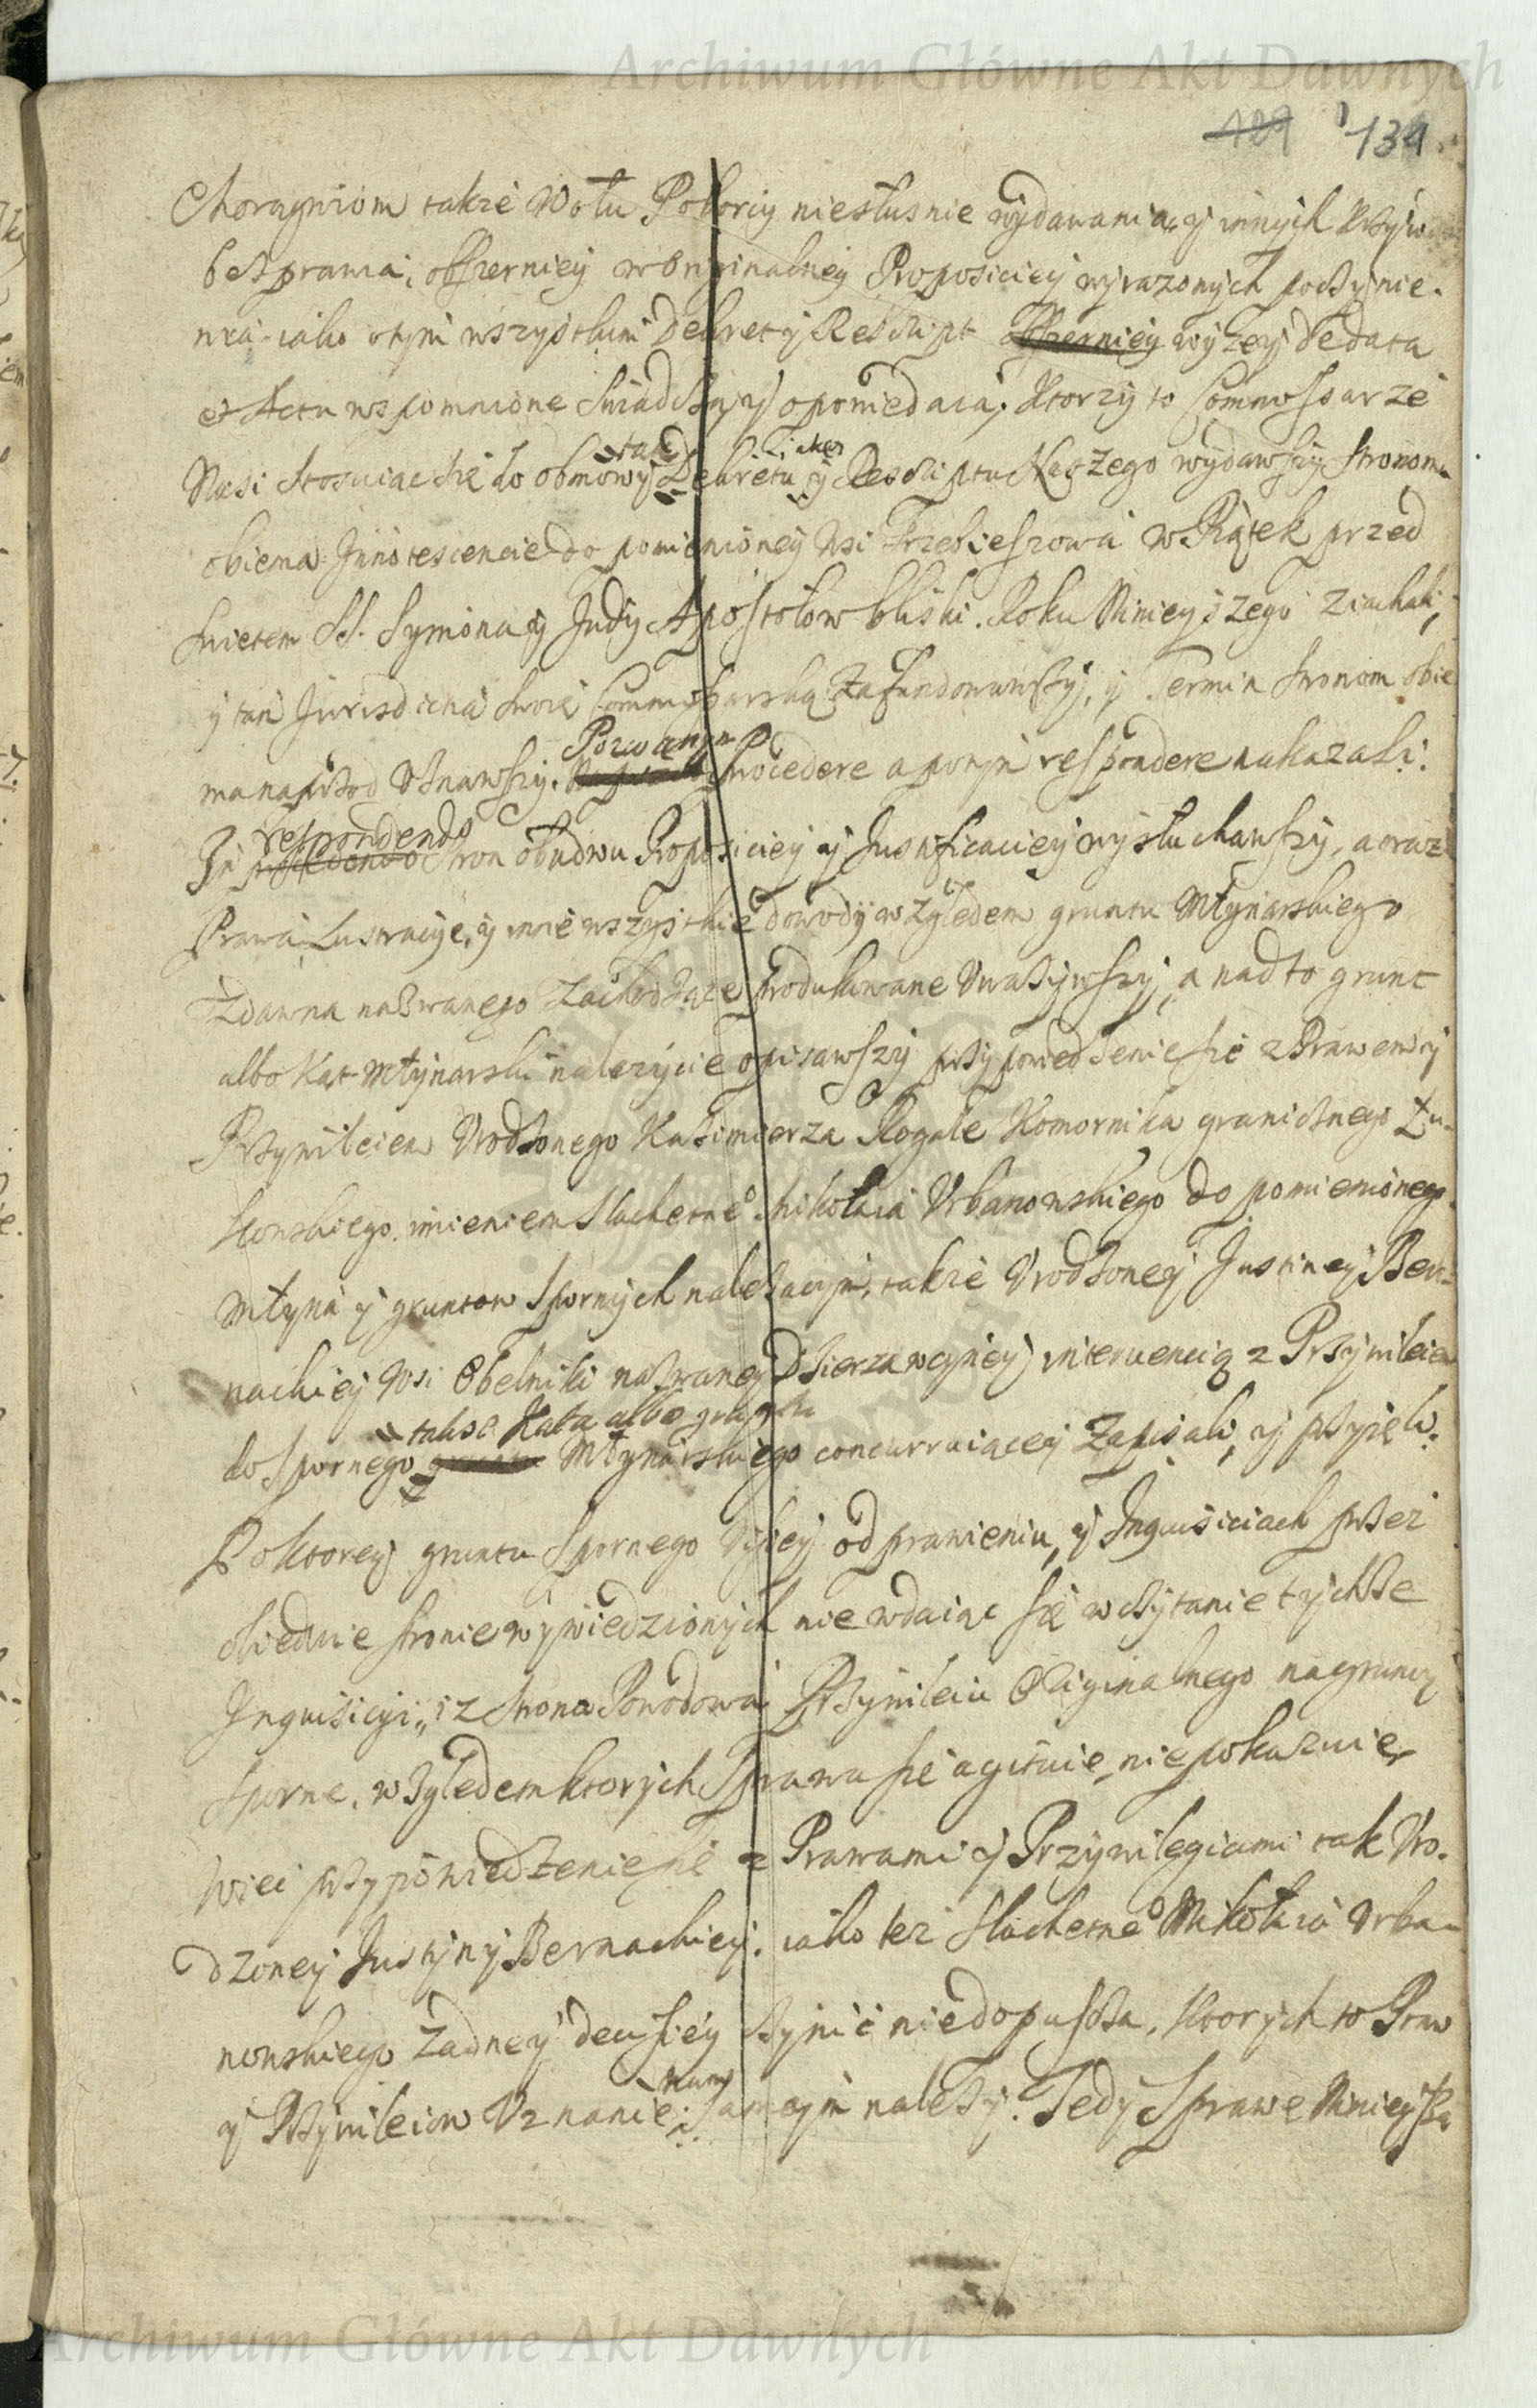 Archiwum Główne Akt Dawnych
129 134
Choragwiom także Wołu Poborcy niesłusnie wydawania, y innych Krzyw
besprawia, obszerniey w Originalney Proposiciey wyrazonych poczynie-
nia. iako o tym wszystkim Dekret y Reskript obszerniey wyzey de data
et Actu wspomnione Swiadczą, y opowiedaią, Ktorzy to Commissarze
tak
Nasi Stosuiac sie do obmowy Dekretu y Reskriptu Naszego wydawszy Stronom
obiema Innotescencie do pomienioney Wsi Trzebieszowa w Piątek przed
Swietem SS. Symona y Judy Apostołow bliski. Roku Ninieyszego ziachali,
y tam Jurisdictią Swoię Commissarską Zafundowawszy, y Termin Stronom obie
Pozwanym
ma naprzod Uznawszy. Procedere a powym respondere nakazali.
respondendo
In procedendo Stron obudwu Proposiciey y Justificaciey wysłuchawszy, a oraz
Prawa Lustracye, y inne wszystkie dowody wzgledem gruntu Młynarskiego
Zdawna nazwanego Zachodzące produkowane Uważywszy, a nadto grunt
albo Kąt Młynarski nalezycie opisawszy przypowiedzenie sie z Prawem y
Przywileiem Urodzonego Kazimierza Rogale Komornika granicznego Łu-
kowskiego. imieniem Slachetneo Mikołaia Urbanowskiego do pomienionego
Młyna y gruntow Spornych nalezacym, także Urodzoney Justiney Ber-
nackiey Wsi Obelniki nazwaney Dzierzawczyney intervencią z Przywileiem
takze Kąta albo gruntu
do Spornego gruntu Młynarskiego concurruiacey Zapisali, y przyieli.
Po ktorey gruntu Spornego Visiey odprawieniu, y Inquisiciach przez
obiedwie stronie wywiedzionych nie wdaiąc się w czytanie tychze
Inquisicyi, iz Strona Powodowa Przywileiu Originalnego na grunty
Sporne, wzgledem ktorych Sprawa się agituie, nie pokazuie,
Wiec przypowiedzenie sie z Prawami y Przywilegiami tak Uro-
dzoney Justyny Bernackiey. iako tez Slachetneo Mikołaia Urba-
nowskiego Zadney decisiey czynić niedopuszcza, Ktorych to Praw
Nam
y Przywileiow Uznanie Samym nalezy. Tedy Sprawe Ninieysza
Archiwum Główne Akt Dawnych